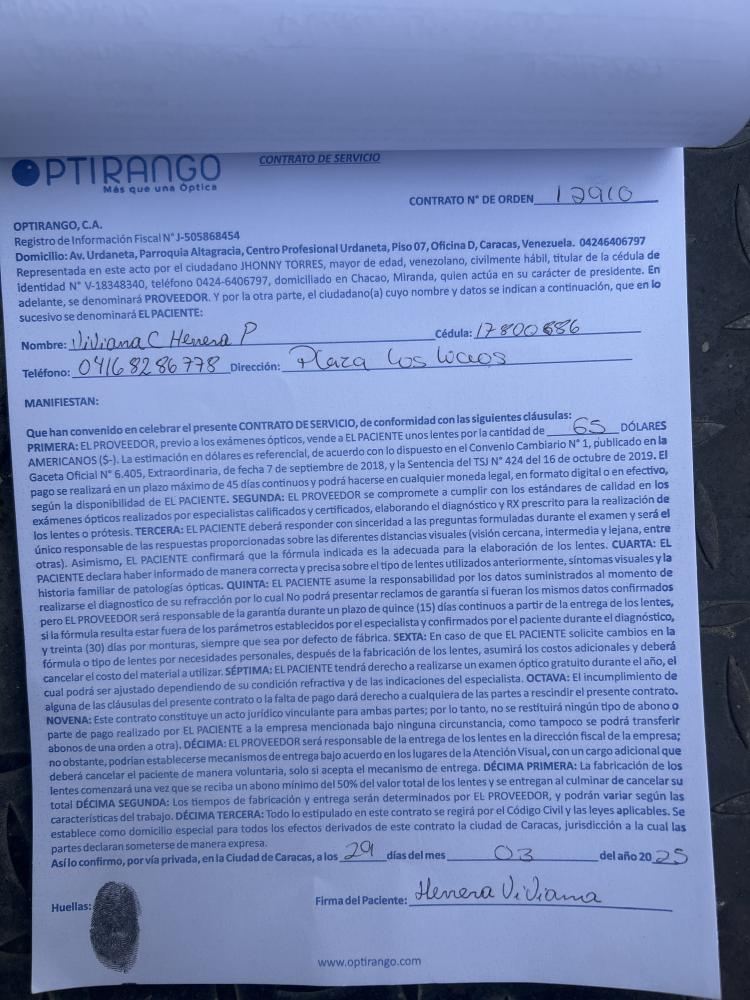 OPTIRANGO
Más que una Óptica
CONTRATO DE SERVICIO
CONTRATO N° DE ORDEN 12910
OPTIRANGO, C.A.
Registro de Información Fiscal N° J-505868454
Domicilio: Av. Urdaneta, Parroquia Altagracia, Centro Profesional Urdaneta, Piso 07, Oficina D, Caracas, Venezuela. 04246406797
Representada en este acto por el ciudadano JHONNY TORRES, mayor de edad, venezolano, civilmente hábil, titular de la cédula de
identidad N° V-18348340, teléfono 0424-6406797, domiciliado en Chacao, Miranda, quien actúa en su carácter de presidente. En
adelante, se denominará PROVEEDOR. Y por la otra parte, el ciudadano(a) cuyo nombre y datos se indican a continuación, que en lo
sucesivo se denominará EL PACIENTE:
Nombre: Viviana C Herrera P Cédula: 17800686
Teléfono: 04168286778 Dirección: Plaza Los
MANIFIESTAN:
Que han convenido en celebrar el presente CONTRATO DE SERVICIO, de conformidad con las siguientes cláusulas:
PRIMERA: EL PROVEEDOR, previo a los exámenes ópticos, vende a EL PACIENTE unos lentes por la cantidad de 65 DÓLARES
AMERICANOS ($-). La estimación en dólares es referencial, de acuerdo con lo dispuesto en el Convenio Cambiario N° 1, publicado en la
Gaceta Oficial N° 6.405, Extraordinaria, de fecha 7 de septiembre de 2018, y la Sentencia del TSJ N° 424 del 16 de octubre de 2019. El
pago se realizará en un plazo máximo de 45 días continuos y podrá hacerse en cualquier moneda legal, en formato digital o en efectivo,
según la disponibilidad de EL PACIENTE. SEGUNDA: EL PROVEEDOR se compromete a cumplir con los estándares de calidad en los
exámenes ópticos realizados por especialistas calificados y certificados, elaborando el diagnóstico y RX prescrito para la realización de
los lentes o prótesis. TERCERA: EL PACIENTE deberá responder con sinceridad a las preguntas formuladas durante el examen y será el
único responsable de las respuestas proporcionadas sobre las diferentes distancias visuales (visión cercana, intermedia y lejana, entre
otras). Asimismo, EL PACIENTE confirmará que la fórmula indicada es la adecuada para la elaboración de los lentes. CUARTA: EL
PACIENTE declara haber informado de manera correcta y precisa sobre el tipo de lentes utilizados anteriormente, síntomas visuales y la
historia familiar de patologías ópticas. QUINTA: EL PACIENTE asume la responsabilidad por los datos suministrados al momento de
realizarse el diagnostico de su refracción por lo cual No podrá presentar reclamos de garantía si fueran los mismos datos confirmados
pero EL PROVEEDOR será responsable de la garantía durante un plazo de quince (15) días continuos a partir de la entrega de los lentes,
si la fórmula resulta estar fuera de los parámetros establecidos por el especialista y confirmados por el paciente durante el diagnóstico,
y treinta (30) días por monturas, siempre que sea por defecto de fábrica. SEXTA: En caso de que EL PACIENTE solicite cambios en la
fórmula o tipo de lentes por necesidades personales, después de la fabricación de los lentes, asumirá los costos adicionales y deberá
cancelar el costo del material a utilizar. SÉPTIMA: EL PACIENTE tendrá derecho a realizarse un examen óptico gratuito durante el año, el
cual podrá ser ajustado dependiendo de su condición refractiva y de las indicaciones del especialista. OCTAVA: El incumplimiento de
alguna de las cláusulas del presente contrato o la falta de pago dará derecho a cualquiera de las partes a rescindir el presente contrato.
NOVENA: Este contrato constituye un acto jurídico vinculante para ambas partes; por lo tanto, no se restituirá ningún tipo de abono o
parte de pago realizado por EL PACIENTE a la empresa mencionada bajo ninguna circunstancia, como tampoco se podrá transferir
abonos de una orden a otra). DÉCIMA: EL PROVEEDOR será responsable de la entrega de los lentes en la dirección fiscal de la empresa;
no obstante, podrían establecerse mecanismos de entrega bajo acuerdo en los lugares de la Atención Visual, con un cargo adicional que
deberá cancelar el paciente de manera voluntaria, solo si acepta el mecanismo de entrega. DÉCIMA PRIMERA: La fabricación de los
lentes comenzará una vez que se reciba un abono mínimo del 50% del valor total de los lentes y se entregan al culminar de cancelar su
total DÉCIMA SEGUNDA: Los tiempos de fabricación y entrega serán determinados por EL PROVEEDOR, y podrán variar según las
características del trabajo. DÉCIMA TERCERA: Todo lo estipulado en este contrato se regirá por el Código Civil y las leyes aplicables. Se
establece como domicilio especial para todos los efectos derivados de este contrato la ciudad de Caracas, jurisdicción a la cual las
partes declaran someterse de manera expresa.
Así lo confirmo, por vía privada, en la Ciudad de Caracas, a los 29 días del mes 03 del año 2025
Huellas: Firma del Paciente: Herrera Viviana
www.optirango.com